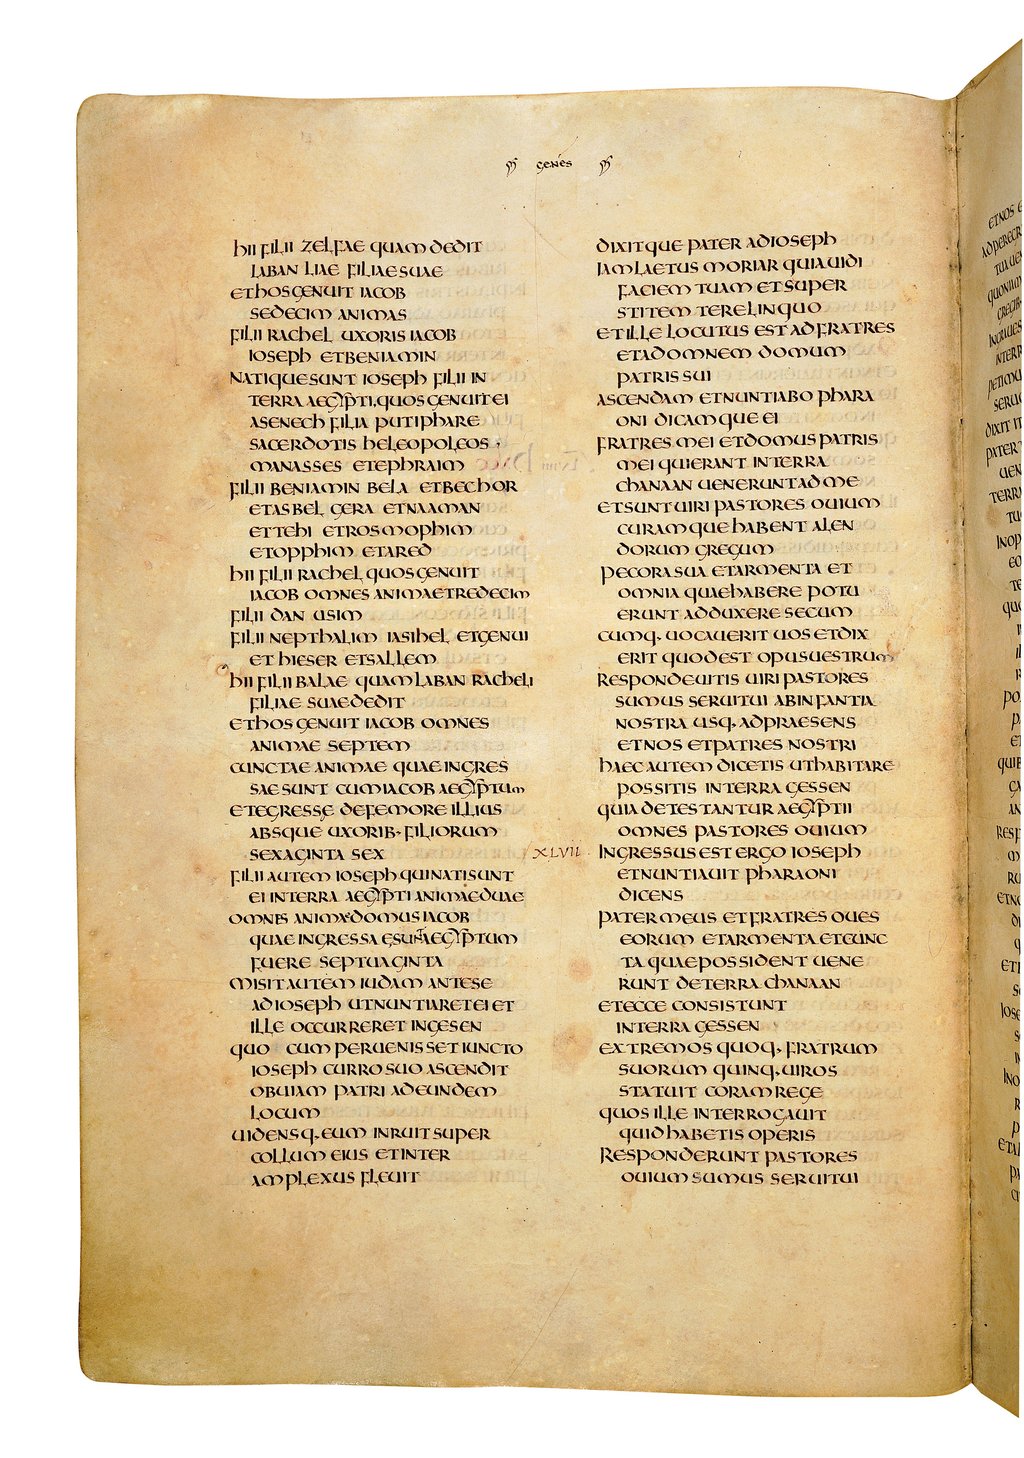 GENES
HII FILII ZELFAE QUAM DEDIT
LABAN LIAE FILIAE SUAE
ET HOS GENUIT IACOB
SEDECIM ANIMAS
FILII RACHEL UXORIS IACOB
IOSEPH ET BENIAMIN
NATIQUE SUNT IOSEPH FILII IN
TERRA AEGYPTI, QUOS GENUIT EI
ASENECH FILIA PUTIPHARE
SACERDOTIS HELEOPOLEOS
MANASSES ET EPHRAIM
FILII BENIAMIN BELA ET BECHOR
ET ASBEL GERA ET NAAMAN
ET TEHI ET ROS MOPHIM
ET OPPHIM ET ARED
HII FILII RACHEL QUOS GENUIT
IACOB OMNES ANIMAE TREDECIM
FILII DAN USIM
FILII NEPTHALIM IASIHEL ET GENUI
ET HIESER ET SALLEM
HII FILII BALAE QUAM LABAN RACHELI
FILIAE SUAE DEDIT
ET HOS GENUIT IACOB OMNES
ANIMAE SEPTEM
CUNCTAE ANIMAE QUAE INGRES
SAE SUNT CUM IACOB AEGYPTUM
ET EGRESSE DE FEMORE ILLIUS
ABSQUE UXORIB· FILIORUM
SEXAGINTA SEX
FILII AUTEM IOSEPH QUI NATI SUNT
EI IN TERRA AEGYPTI ANIMAE DUAE
OMNIS ANIMA DOMUS IACOB
QUAE INGRESSA EST IN AEGYPTUM
FUERE SEPTUAGINTA
MISIT AUTEM IUDAM ANTE SE
AD IOSEPH UT NUNTIARET EI ET
ILLE OCCURRERET IN GESEN
QUO CUM PERUENISSET IUNCTO
IOSEPH CURRO SUO ASCENDIT
OBUIAM PATRI AD EUNDEM
LOCUM
UIDENSQ· EUM INRUIT SUPER
COLLUM EIUS ET INTER
AMPLEXUS FLEUIT
DIXITQUE PATER AD IOSEPH
IAM LAETUS MORIAR QUIA UIDI
FACIEM TUAM ET SUPER
STITEM TE RELINQUO
ET ILLE LOCUTUS EST AD FRATRES
ET AD OMNEM DOMUM
PATRIS SUI
ASCENDAM ET NUNTIABO PHARA
ONI DICAMQUE EI
FRATRES MEI ET DOMUS PATRIS
MEI QUI ERANT IN TERRA
CHANAAN UENERUNT AD ME
ET SUNT UIRI PASTORES OUIUM
CURAMQUE HABENT ALEN
DORUM GREGUM
PECORA SUA ET ARMENTA ET
OMNIA QUAE HABERE POTU
ERUNT ADDUXERE SECUM
CUMQ· UOCAUERIT UOS ET DIX
ERIT QUOD EST OPUS UESTRUM
RESPONDEUITIS UIRI PASTORES
SUMUS SERUI TUI AB INFANTIA
NOSTRA USQ· AD PRAESENS
ET NOS ET PATRES NOSTRI
HAEC AUTEM DICETIS UT HABITARE
POSSITIS IN TERRA GESSEN
QUIA DETESTANTUR AEGYPTII
OMNES PASTORES OUIUM
XLVII INGRESSUS EST ERGO IOSEPH
ET NUNTIAUIT PHARAONI
DICENS
PATER MEUS ET FRATRES OUES
EORUM ET ARMENTA ET CUNC
TA QUAE POSSIDENT UENE
RUNT DE TERRA CHANAAN
ET ECCE CONSISTUNT
IN TERRA GESSEN
EXTREMOS QUOQ· FRATRUM
SUORUM QUINQ· UIROS
STATUIT CORAM REGE
QUOS ILLE INTERROGAUIT
QUID HABETIS OPERIS
RESPONDERUNT PASTORES
OUIUM SUMUS SERUI TUI